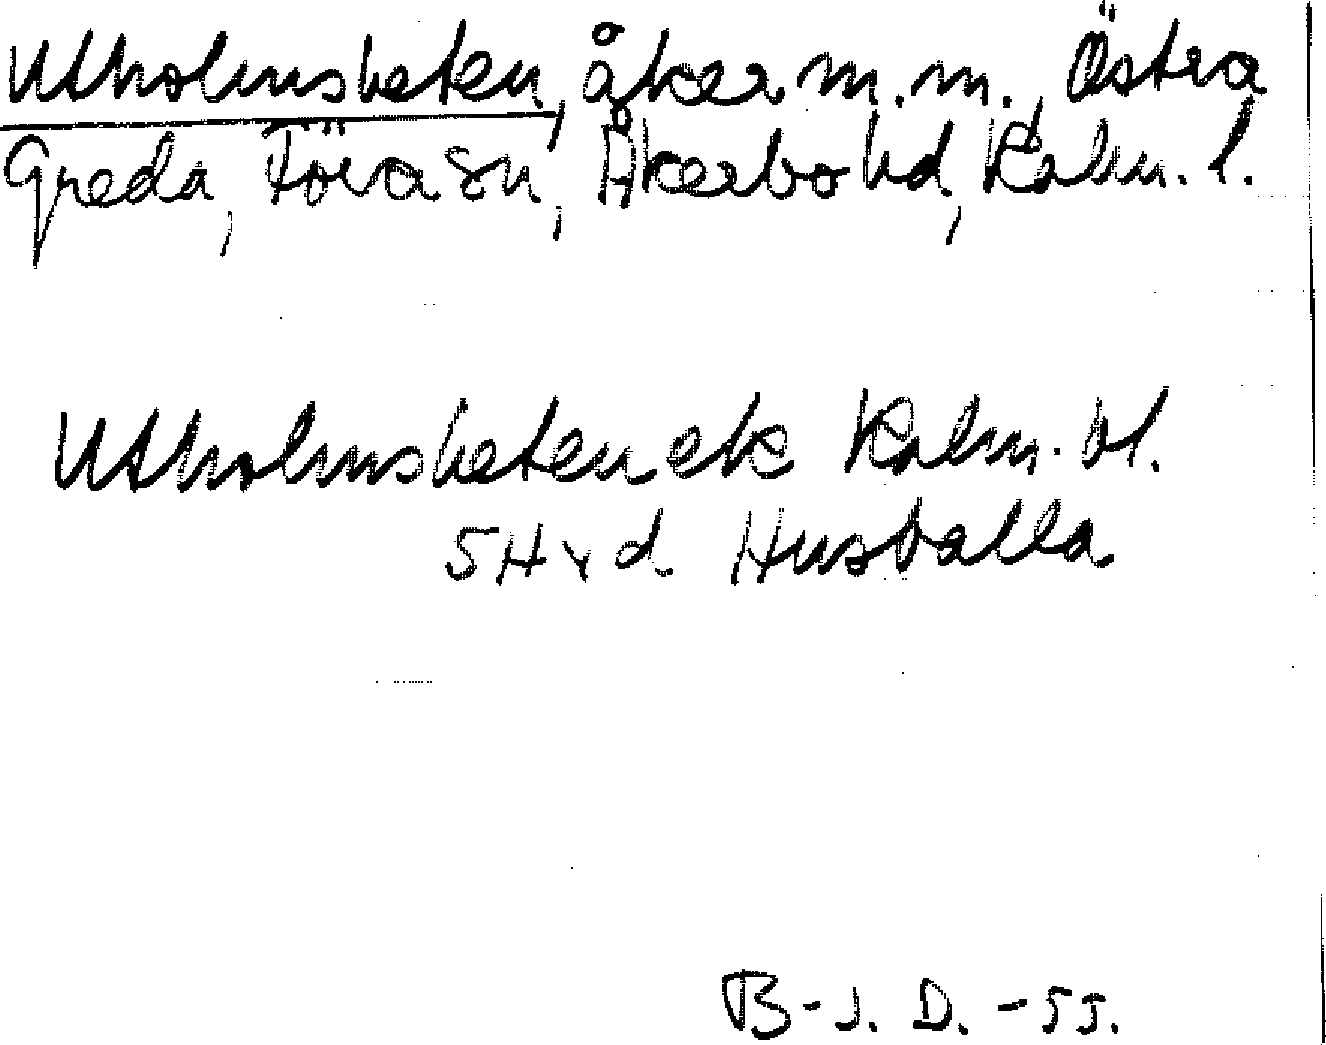 Utholmsheten, åker m.m., Östra
Greda, Föra sn, Åkerbo hd, Kalm. l.
Utholmsheten ek Kalm. bl.
5H v d Husvalla
B-J. D. -55.